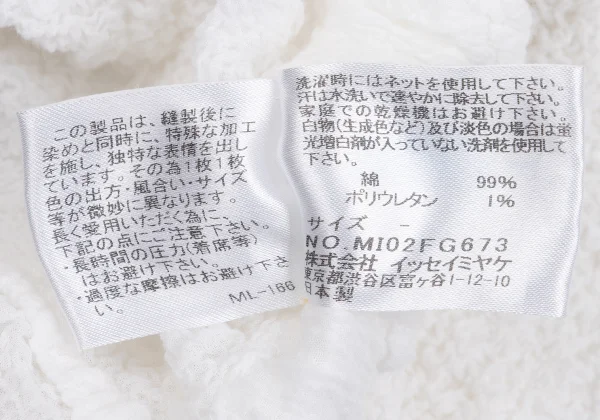 この製品は、縫製後に
染めと同時に、特殊な加工
を施し、独特な表情を出し
ています。その為1枚1枚
色の出方・風合い・サイズ
等が微妙に異なります。
長く愛用いただく為に、
下記の点にご注意下さい。
・長時間の圧力(着席等)
はお避け下さい。
・過度な摩擦はお避け下さ
い。
ML-166
洗濯時にはネットを使用して下さい。
汗は水洗いで速やかに除去して下さい。
家庭での乾燥機はお避け下さい。
白物(生成色など)及び淡色の場合は蛍
光増白剤が入っていない洗剤を使用して
下さい。
綿 99%
ポリウレタン 1%
サイズ -
NO.MI02FG673
株式会社 イッセイミヤケ
東京都渋谷区富ヶ谷1-12-10
日本製